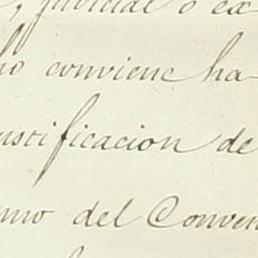 , judicial o ex
ho conviene ha-
ustificacion de
smo del Conven